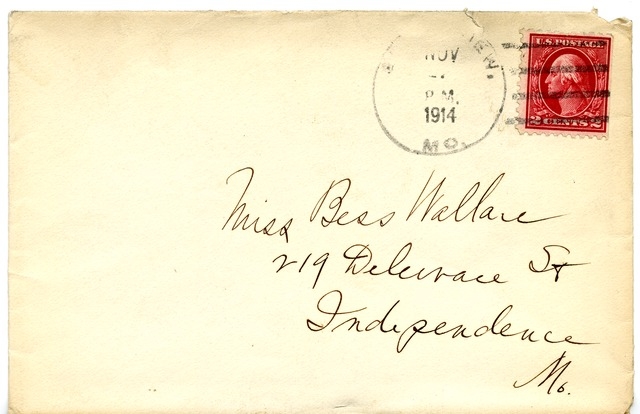 NOV
P.M.
1914
MO.
U.S. POSTAGE
2 CENTS 2
Miss Bess Wallace
219 Delaware St
Independence
Mo.